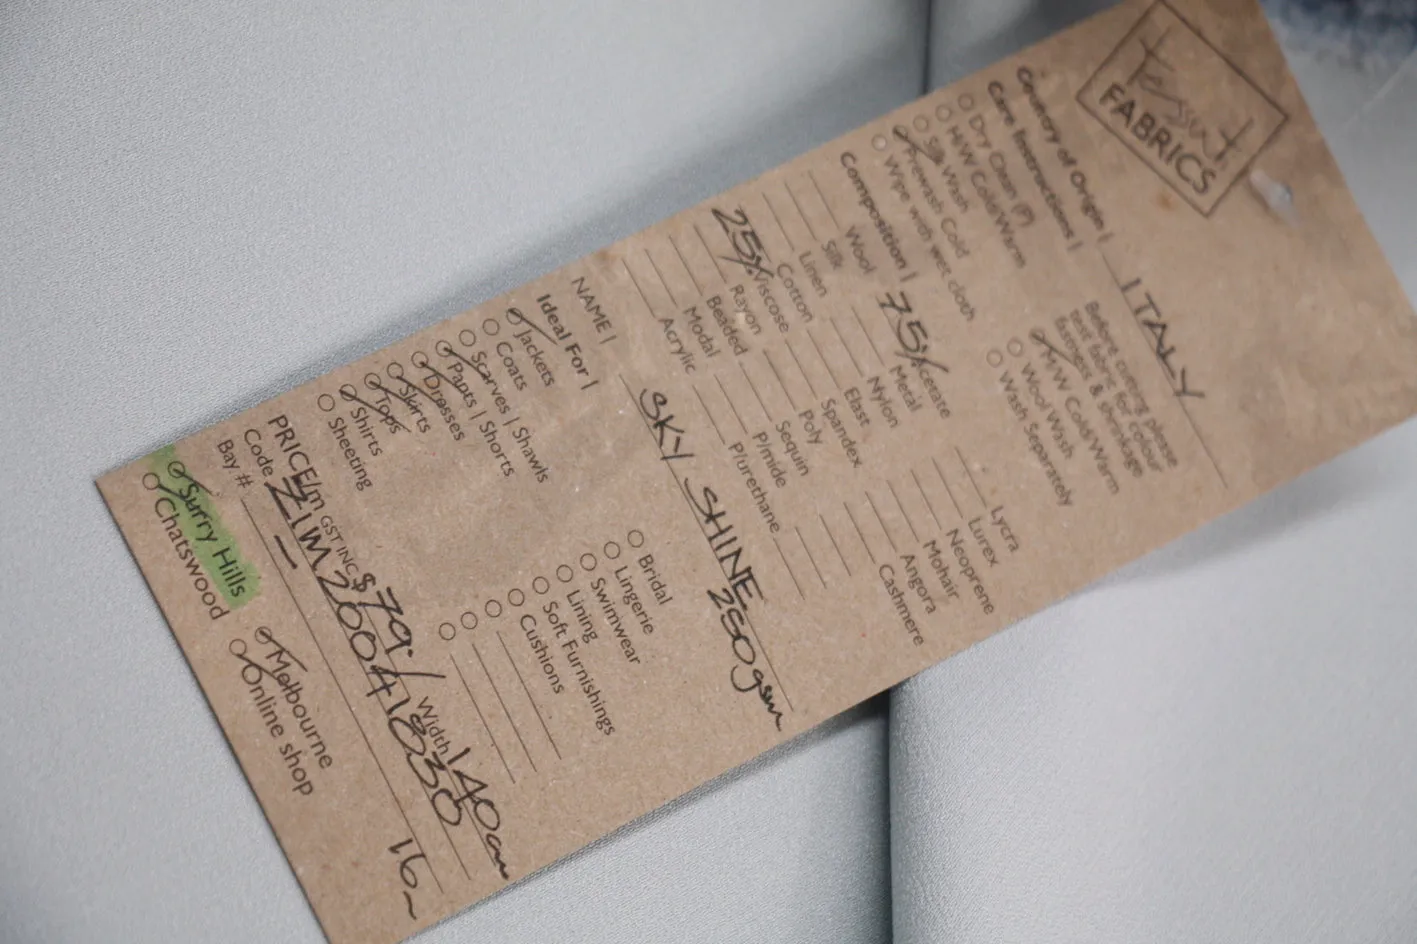 tessuti
FABRICS
Country of Origin | ITALY
Care Instructions |
Dry Clean (P)
H/W Cold/Warm
Silk Wash
Prewash Cold
Wipe with wet cloth
Before cutting please
test fabric for colour
fastness & shrinkage
M/W Cold/Warm
Wool Wash
Wash Separately
Composition |
Wool
Silk
Linen
Cotton
25% Viscose
Rayon
Beaded
Modal
Acrylic
75% Acetate
Metal
Nylon
Elast
Spandex
Poly
Sequin
P/mide
P/urethane
Lycra
Lurex
Neoprene
Mohair
Angora
Cashmere
NAME | SKY SHINE
250gsm
Ideal For |
Jackets
Coats
Scarves | Shawls
Pants | Shorts
Dresses
Skirts
Tops
Shirts
Sheeting
Bridal
Lingerie
Swimwear
Lining
Soft Furnishings
Cushions
PRICE/m GST INC $79./ Width 140cm
Code ZLIM20041830
Bay # 16
Surry Hills
Chatswood
Melbourne
Online shop